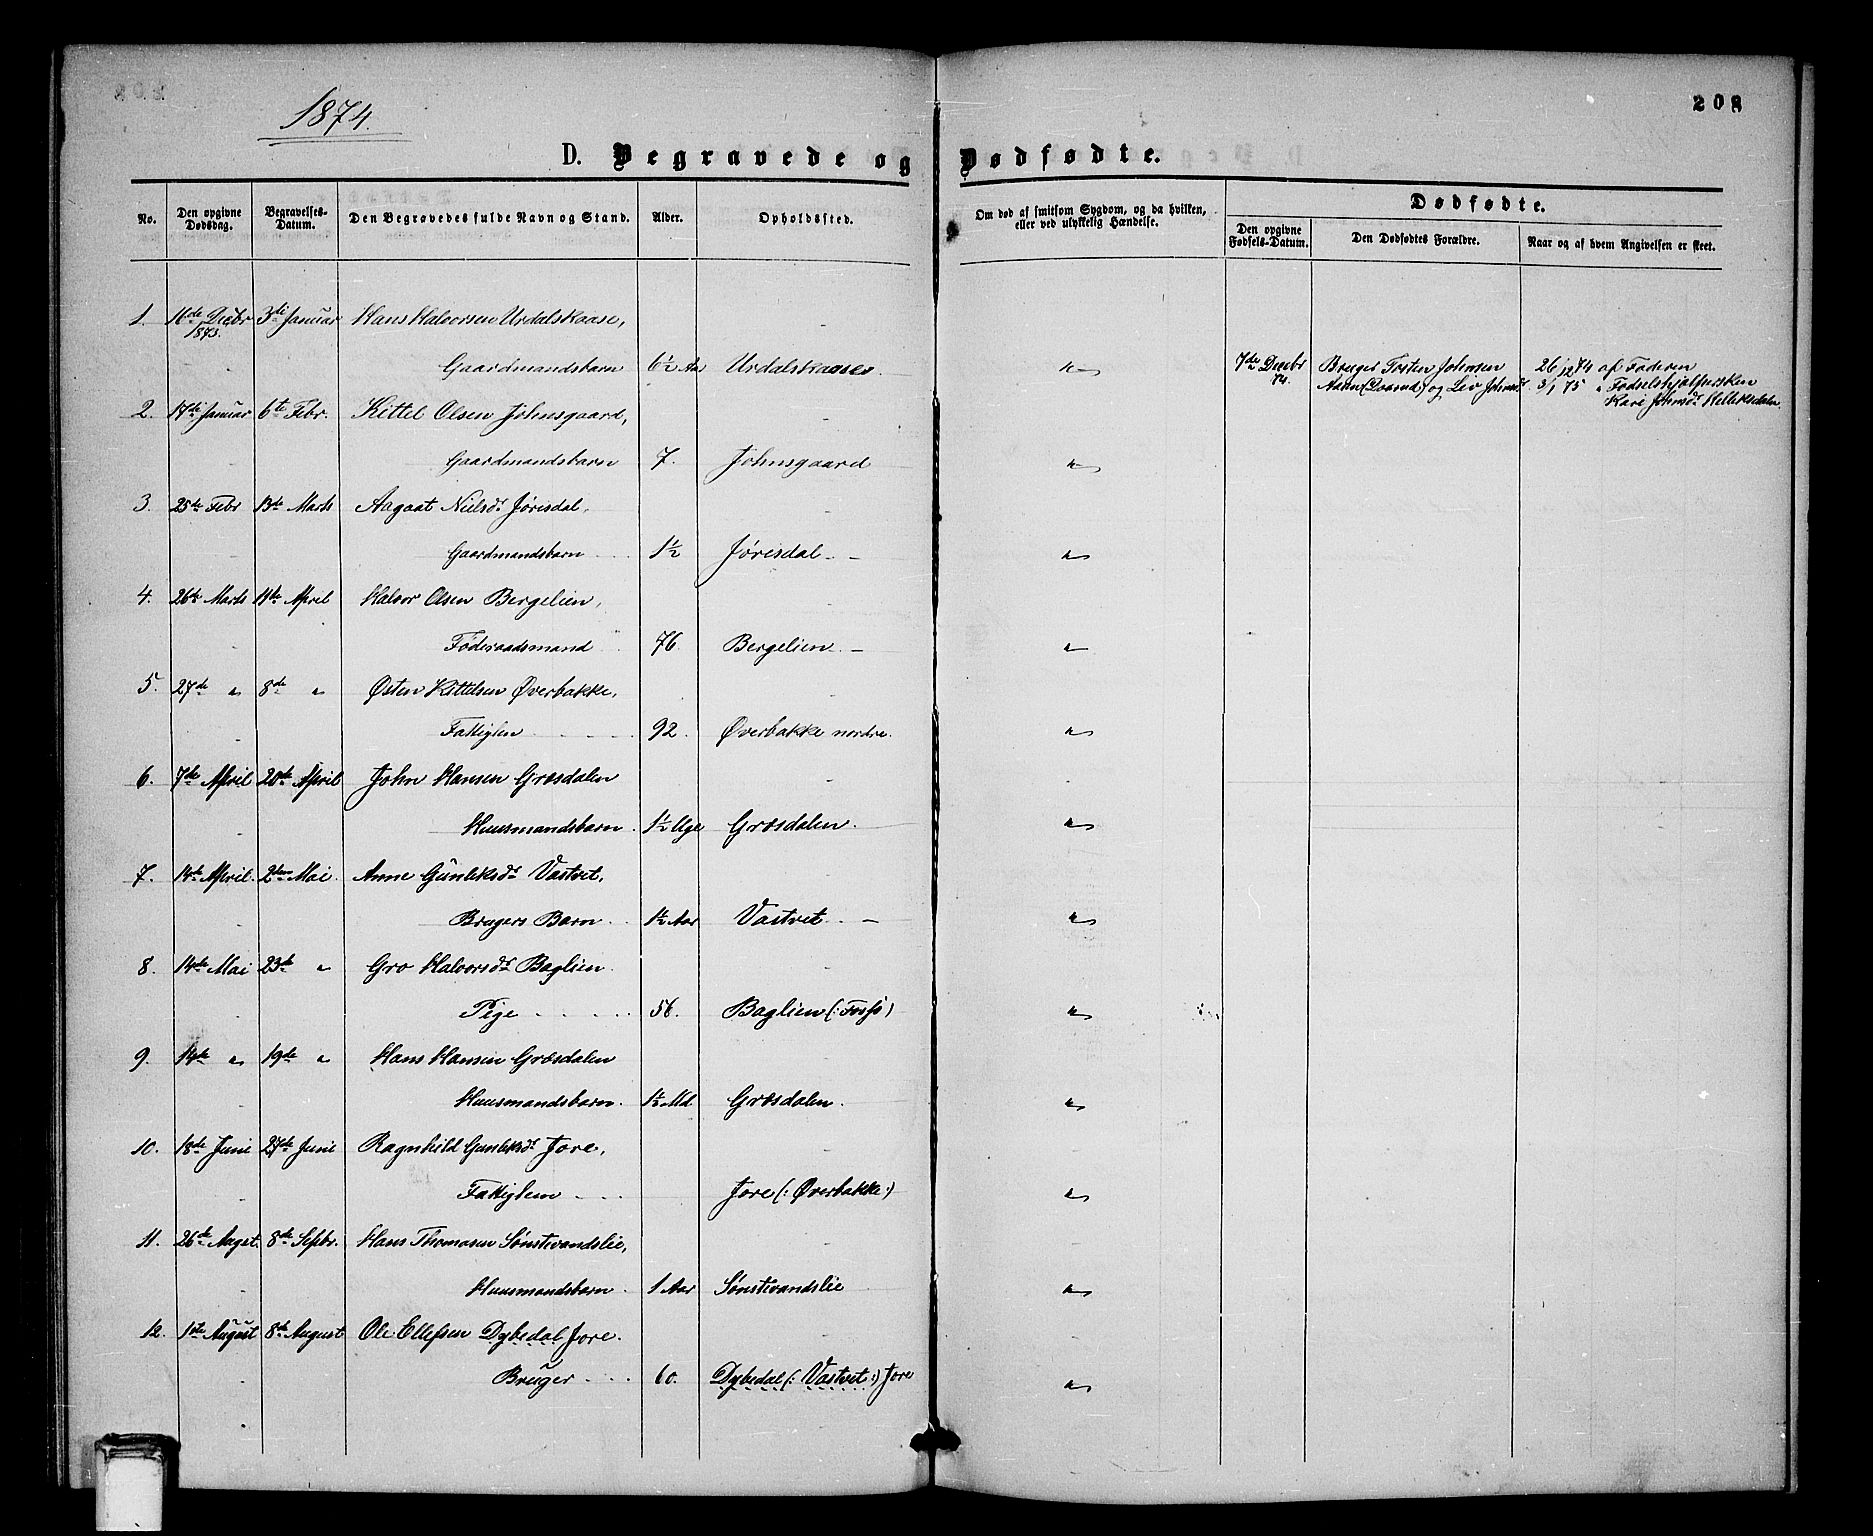 1874.
208
D. Begravede og Dødfødte.
No. Den opgivne Dødsdag. Begravelses-Datum. Den Begravedes fulde Navn og Stand. Alder. Opholdssted. Om død af smitsom Sygdom, og da hvilken, eller ved ulykkelig Hændelse. Dødfødte.
Den opgivne Fødsels-Datum. Den Dødfødtes Forældre. Naar og af hvem Angivelsen er skeet.
1. 16de Decbr 1873. 3die Januar Hans Halvorsen Urdalskaase,
Gaardmandsbarn 6½ Aar Urdalskaase. "
7de Decbr 74. Bruger Torsten Johnsen og Liv Johnsdr
26/12 74 af Faderen
3/1 75 " Fødselshjælpersken
Kari Johnsdr Helliksdalen.
2. 17de Januar 6te Febr. Kittel Olsen Johnsgaard,
Gaardmandsbarn 7. Johnsgaard "
3. 25de Febr 13de Marts Aagaat Nielsdr Jørisdal,
Gaardmandsbarn 1½ Jørisdal "
4. 26de Marts 11te April Halvor Olsen Bergelien,
Føderaadsmand 76 Bergelien "
5. 27de " 8de " Østen Kittelsen Øverbakke,
Fattiglem 92. Øverbakke nordre. "
6. 7de April 20de April John Hansen Grøsdalen
Huusmandsbarn. 1½ Uge Grøsdalen. "
7. 14de April. 2den Mai. Anne Gunleksdr Vastvet,
Brugers Barn 1½ Aar Vastvet "
8. 14de Mai 23de " Gro Halvorsdr Baglien.
Pige 56. Baglien (: Fosso) "
9. 14de " 19de " Hans Hansen Grøsdalen
Huusmandsbarn. 1½ Md Grøsdalen. "
10. 18de Juni 27de Juni Ragnhild Gunleksdr Jore,
Fattiglem Jore (: Øverbakke:) "
11. 26de Augst. 8de Septbr. Hans Thomasen Sønstevandslie,
Huusmandsbarn. 1 Aar Sønstevandslie "
12. 1ste August 8de August Ole Ellefsen Dybedal Jore.
Bruger 60. Dybedal (: Vastvet:) Jore "